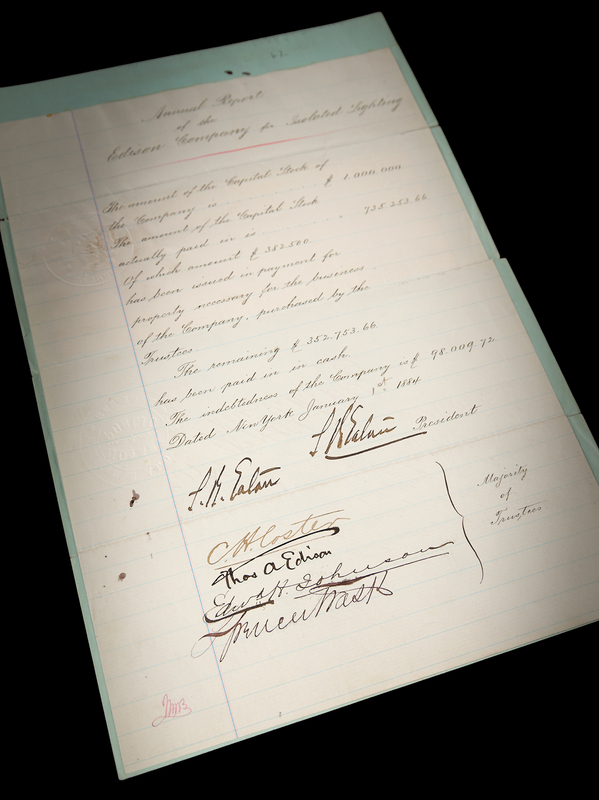 Annual Report
of the
Edison Company for Isolated Lighting
The amount of the Capital Stock of
the Company is $ 1.000.000
The amount of the Capital Stock
actually paid in is 735.253.66
Of which amount $ 382.500
has been issued in payment for
property necessary for the business
of the Company, purchased by the
Trustees
The remaining $ 352.753.66
has been paid in in cash.
The indebtedness of the Company is $ 98.009.72
Dated New York January 1st 1884
S. B. Eaton President
S. B. Eaton
C H. Coster
Thos A Edison
Edwd H. Johnson
Spencer Trask
Majority
of
Trustees